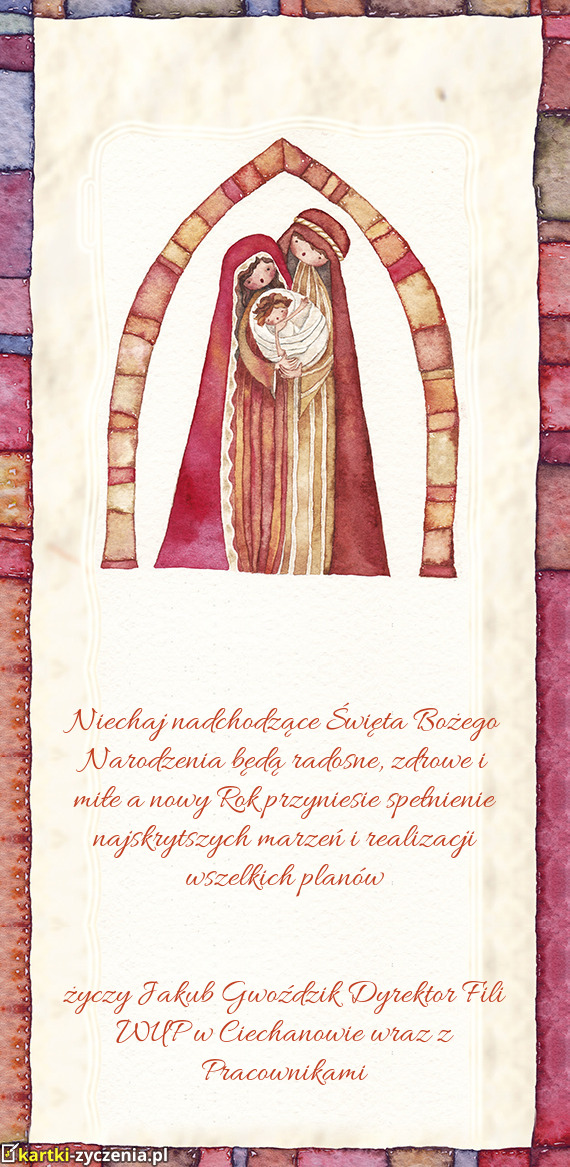 Niechaj nadchodzące Święta Bożego
Narodzenia będą radosne, zdrowe i
miłe a nowy Rok przyniesie spełnienie
najskrytszych marzeń i realizacji
wszelkich planów
życzy Jakub Gwoździk Dyrektor Fili
WUP w Ciechanowie wraz z
Pracownikami
kartki-zyczenia.pl